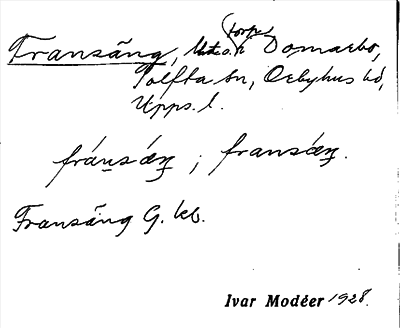 torp
Fransäng, Domarbo,
Tolfta sn, Örbyhus hd,
Upps. l.
fránsǽŋ ; fransǽŋ.
Fransäng G. kb.
Ivar Modéer 1928.